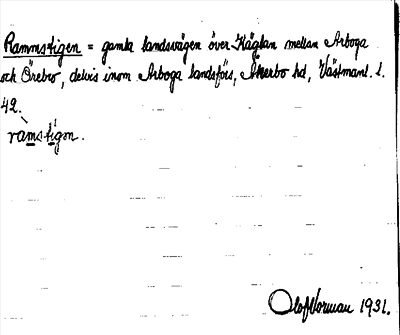 Rammstigen = gamla landsvägen över Käglan mellan Arboga
och Örebro, delvis inom Arboga landsförs, Åkerbo hd, Västmanl. l.
42.
ramstigen.
Olof Norman 1931.